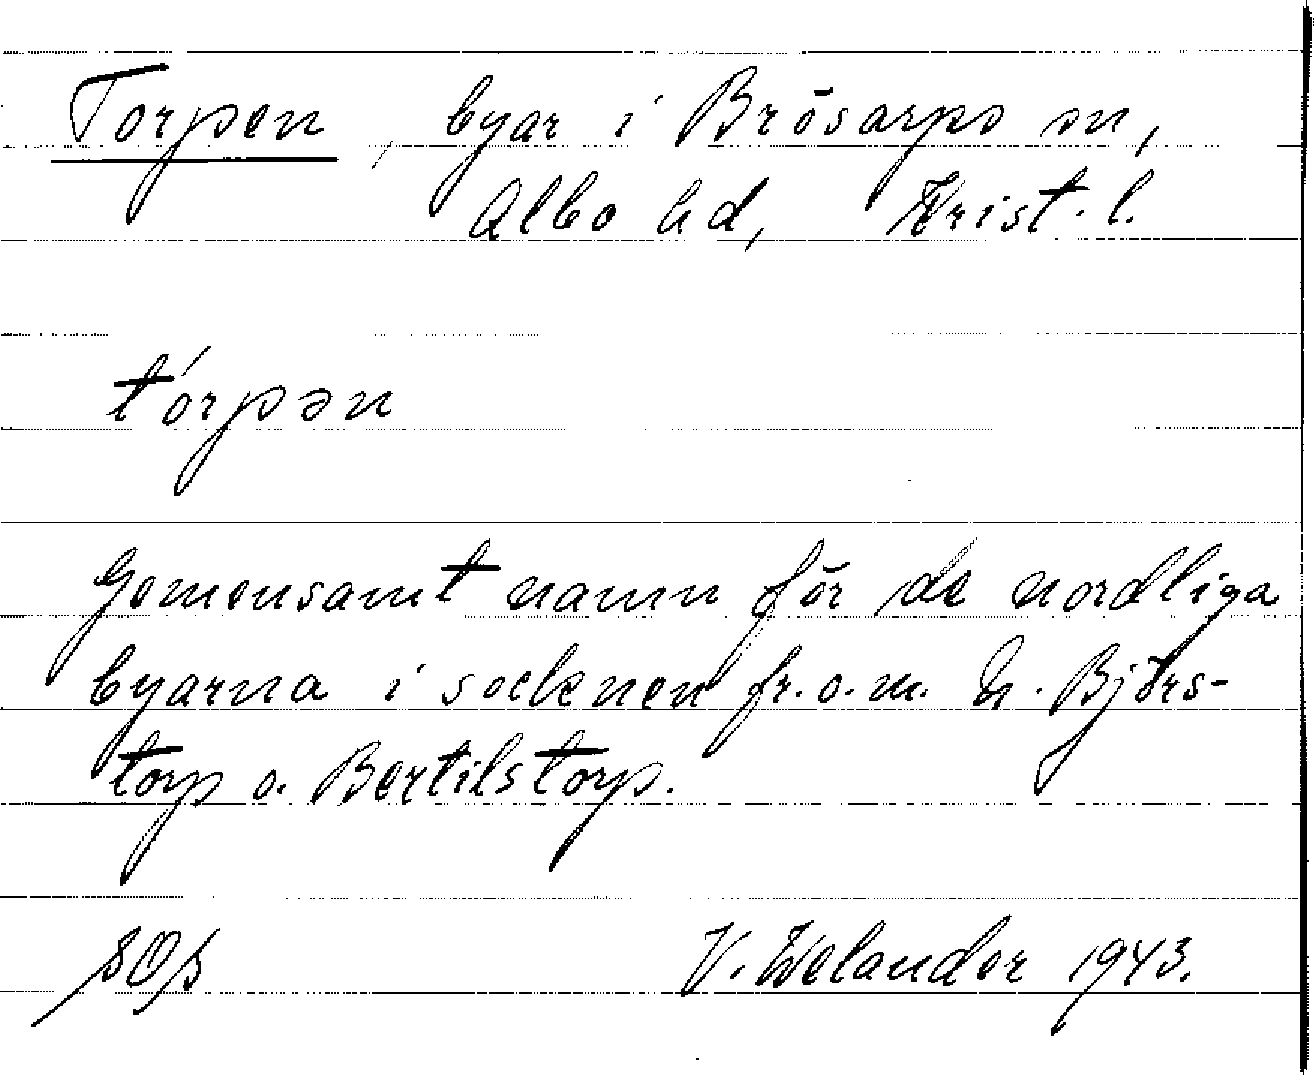 Torpen, byar i Brösarps sn,
Albo hd, Krist. l.
tórpən
Gemensamt namn för de nordliga
byarna i socknen fr. o. m. N. Björs-
torp o. Bertilstorp.
V. Welander 1943.